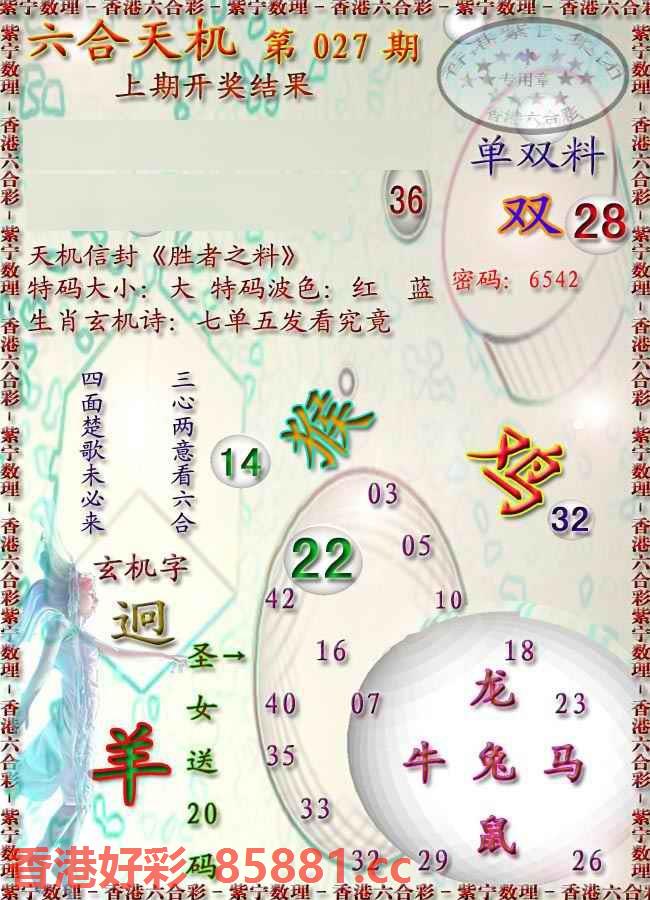 紫宁数理－香港六合彩－紫宁数理－香港六合彩－紫宁数理－香港六合彩
六合天机 第 027 期
上期开奖结果
专用章
香港六合彩
单双料
36
双 28
天机信封《胜者之料》
特码大小：大 特码波色：红 蓝
密码：6542
生肖玄机诗：七单五发看究竟
三心两意看六合
四面楚歌未必来
猴
14
鸡
32
03
22
05
42
10
玄机字
迥
圣女送20码
→
16
18
龙
40
07
23
羊
35
牛 兔 马
33
鼠
32
29
26
香港好彩
85881.cc
紫宁数理－香港六合彩－紫宁数理－香港六合彩－紫宁数理－香港六合彩